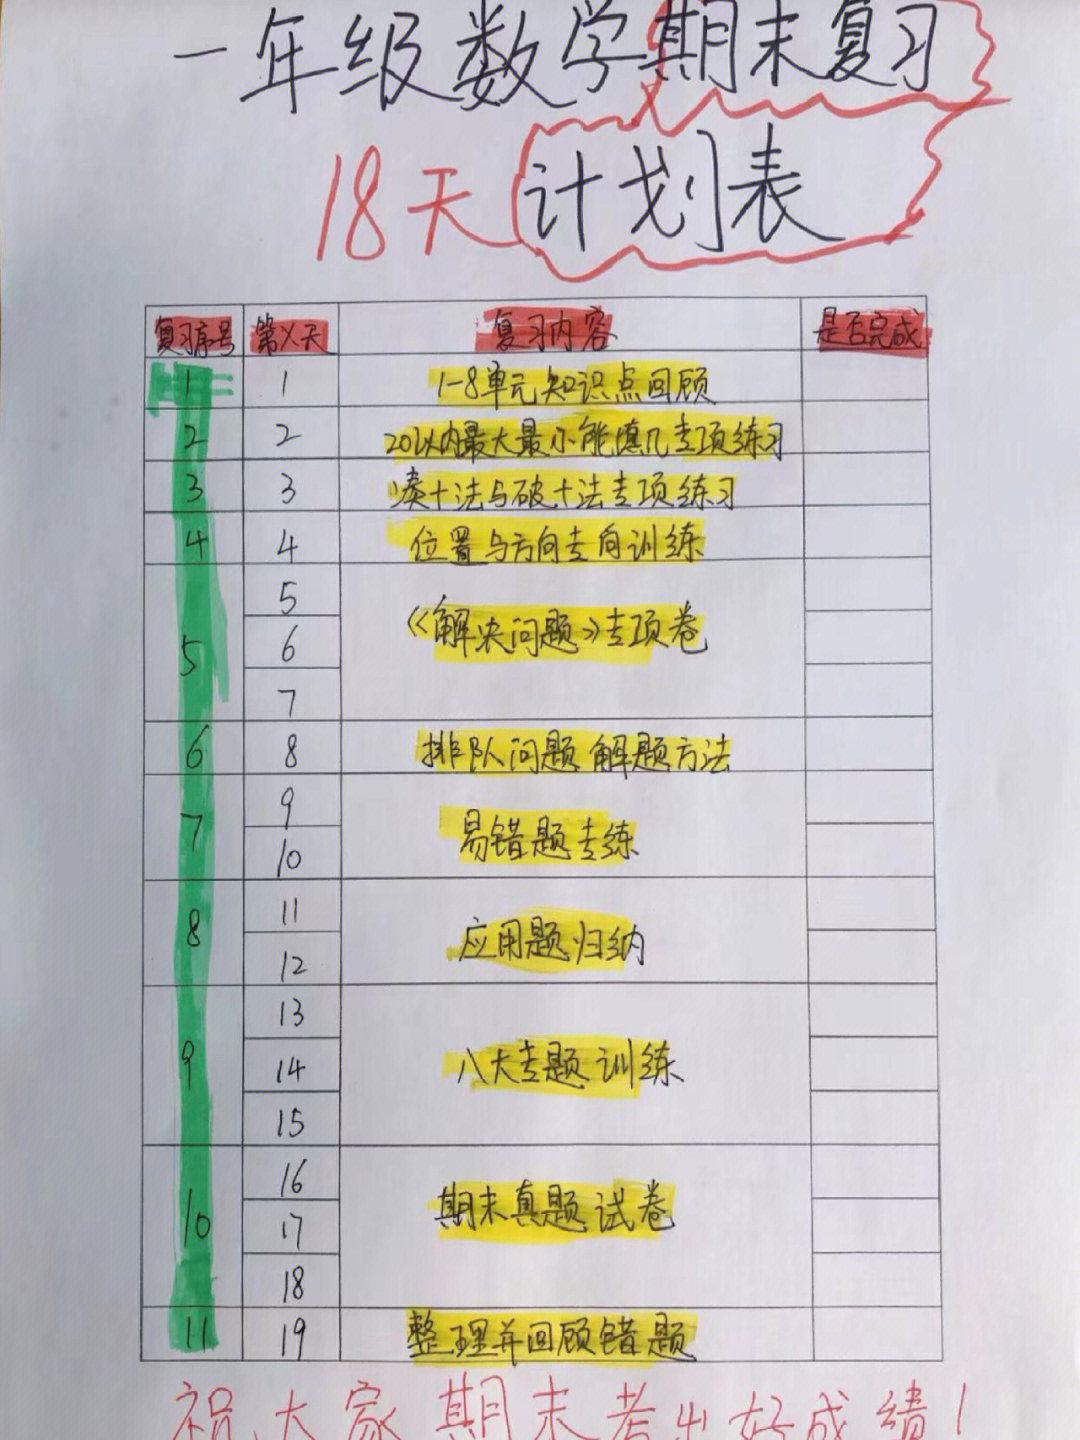 一年级数学期末复习
18天计划表
复习序号 第X天 复习内容 是否完成
1 1 1-8单元知识点回顾
2 2 20以内最大最小能填几专项练习
3 3 凑十法与破十法专项练习
4 4 位置与方向专向训练
5
5 6 《解决问题》专项卷
7
6 8 排队问题解题方法
9
7 易错题专练
10
11
8 应用题归纳
12
13
9 14 八大专题训练
15
16
10 17 期末真题试卷
18
11 19 整理并回顾错题
祝大家期末考出好成绩!